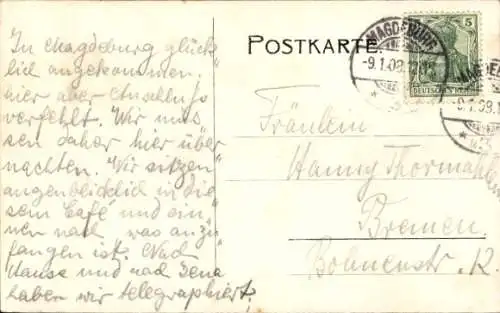 In Magdeburg glück-
lich angekommen,
hier aber Anschluss
verfehlt. Wir müs-
sen daher hier über-
nachten. Wir sitzen
augenblicklich in die-
sem Café und
nen nach was anzu-
fangen ist. Nach
Hause und nach Jena
haben wir telegraphiert.
POSTKARTE.
MAGDEBURG
-9.1.09.
5
DEUTSCHES REICH
Fräulein
Hanny Thormählen
Bremen.
Bohnenstr.